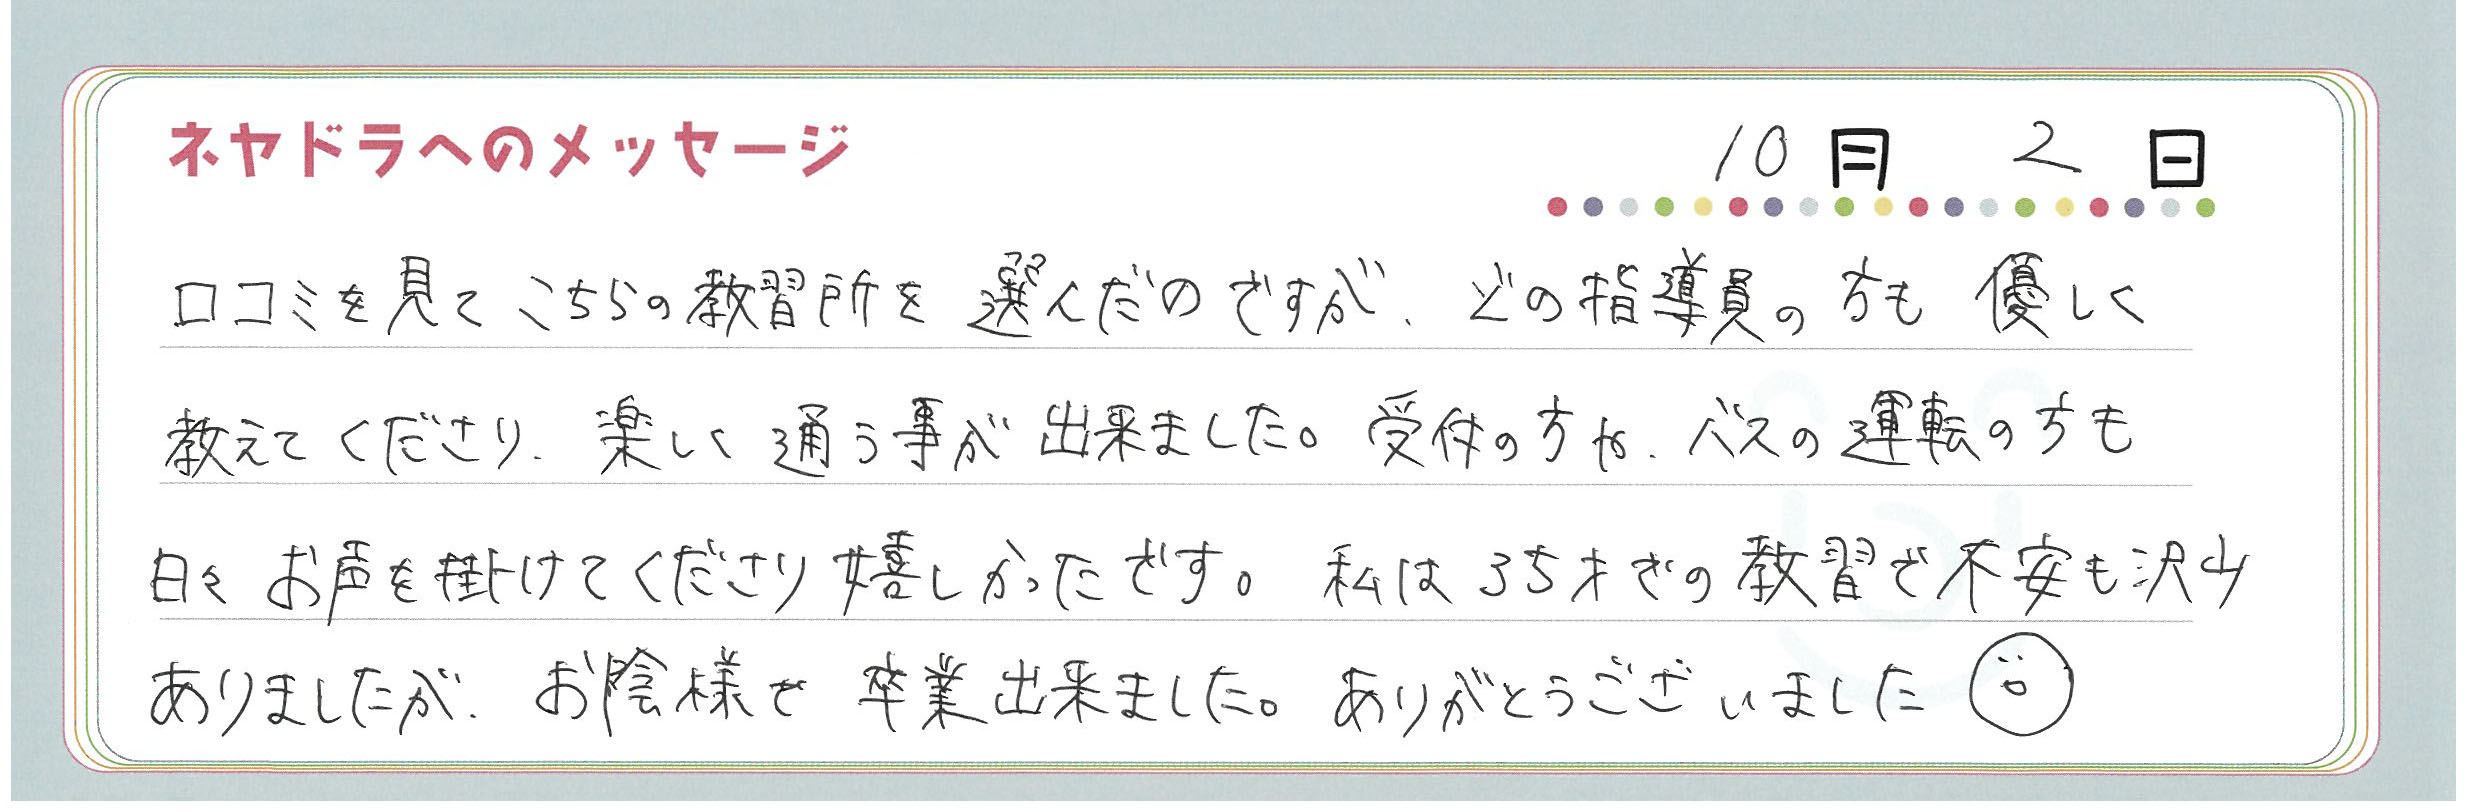 ネヤドラへのメッセージ
10月 2日
口コミを見てこちらの教習所を選んだのですが、どの指導員の方も優しく
教えてくださり、楽しく通う事が出来ました。受付の方や、バスの運転の方も
日々お声を掛けてくださり嬉しかったです。私は35才での教習で不安も沢山
ありましたが、お陰様で卒業出来ました。ありがとうございました